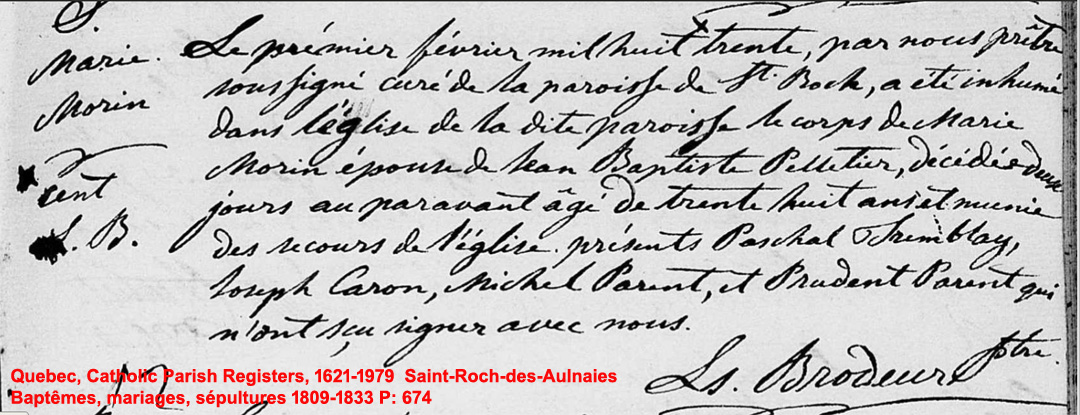 S.
Marie
Morin
cent
L. B.
Le prémier février mil huit trente, par nous prêtre
soussigné curé de la paroisse de St. Roch, a été inhumé
dans l'église de la dite paroisse le corps de Marie
Morin épouse de Jean Baptiste Pelletier, décédée deux
jours au paravant âgé de trente huit ans et munie
des secours de l'église. présents Paschal Tremblay,
Joseph Caron, Michel Parent, et Prudent Parent qui
n'ont sçu signer avec nous.
Ls. Brodeur ptre.
Quebec, Catholic Parish Registers, 1621-1979 Saint-Roch-des-Aulnaies
Baptêmes, mariages, sépultures 1809-1833 P: 674